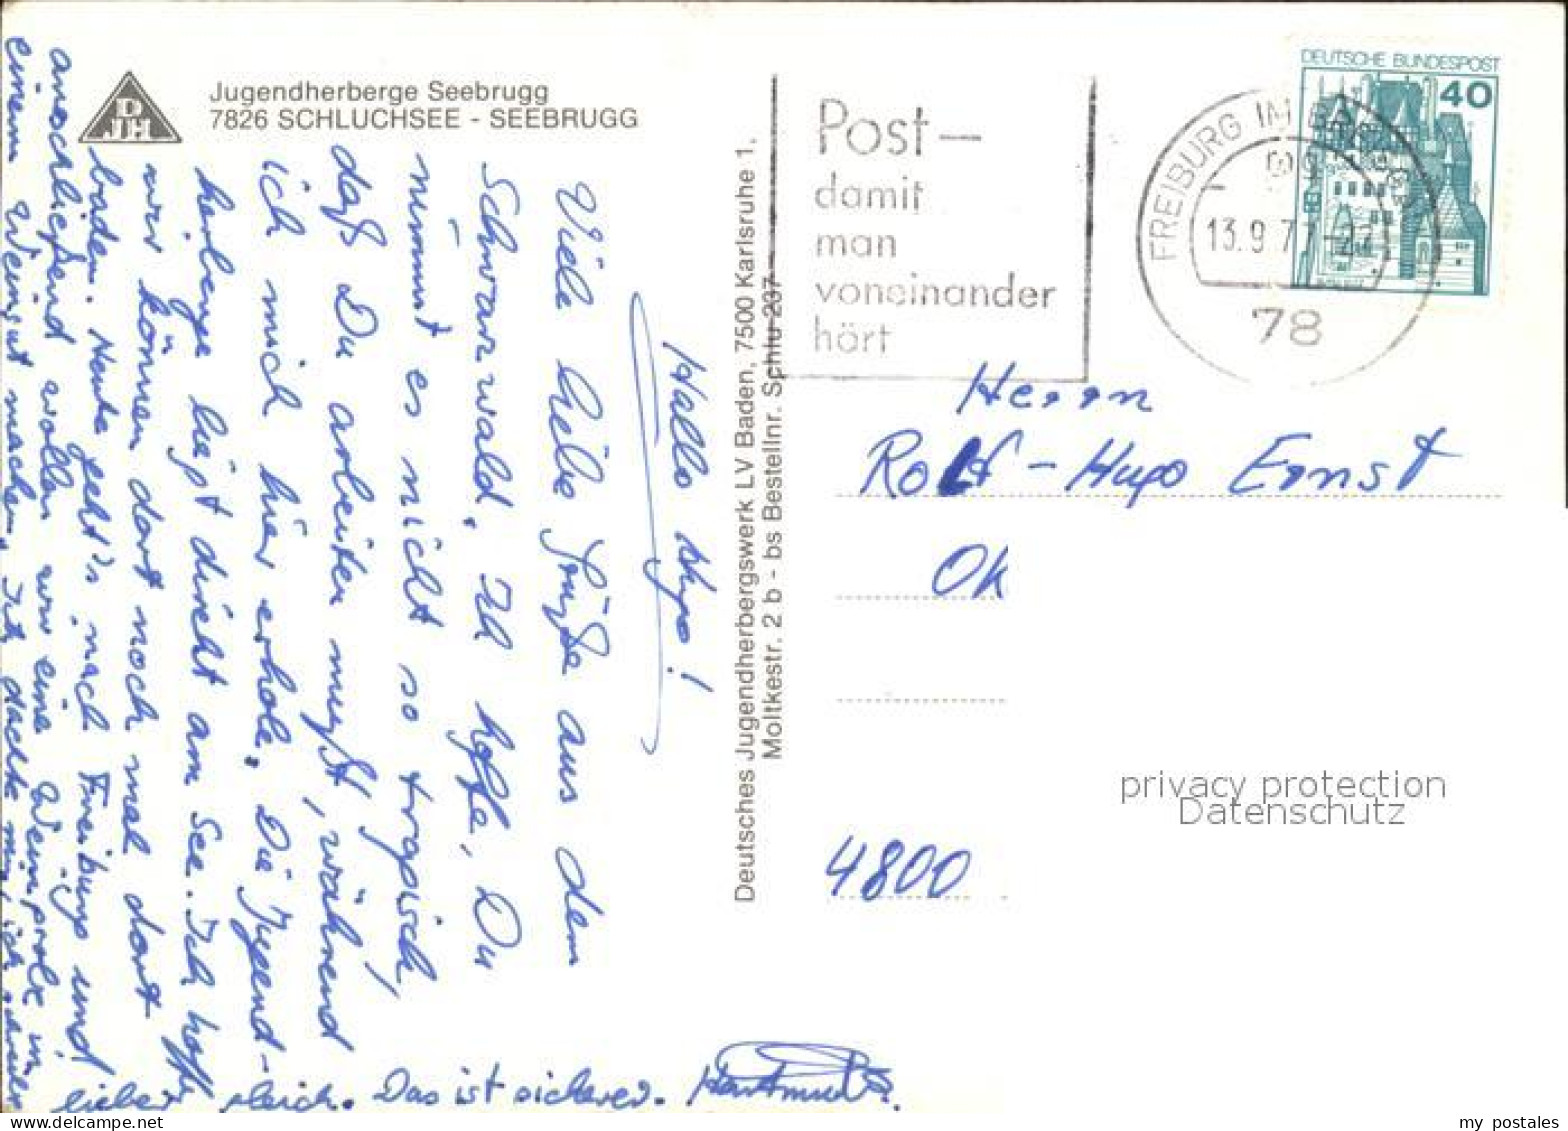 DJH
Jugendherberge Seebrugg
7826 SCHLUCHSEE - SEEBRUGG
Hallo Hugo!
Viele liebe Grüße aus dem
Schwarzwald. Ich hoffe, Du
nimmst es nicht so tragisch,
daß Du arbeiten mußt, während
ich mich hier erhole. Die Jugend-
herberge liegt direkt am See. Ich hoffe
wir können dort noch mal dort
baden. Heute geht's nach Freiburg und
anschließend wollen wir eine Weinprobe in
einem Weingut machen. Ich dachte mir, ich
lieber gleich. Das ist sicherer. Hartmut
Deutsches Jugendherbergswerk LV Baden, 7500 Karlsruhe 1.
Moltkestr. 2 b - bs Bestellnr. Schlu 237
Post—
damit
man
voneinander
hört
FREIBURG IM
13.9.77-22
78
DEUTSCHE BUNDESPOST
40
Herrn
Rolf-Hugo Ernst
Ok
4800
privacy protection
Datenschutz
my postales